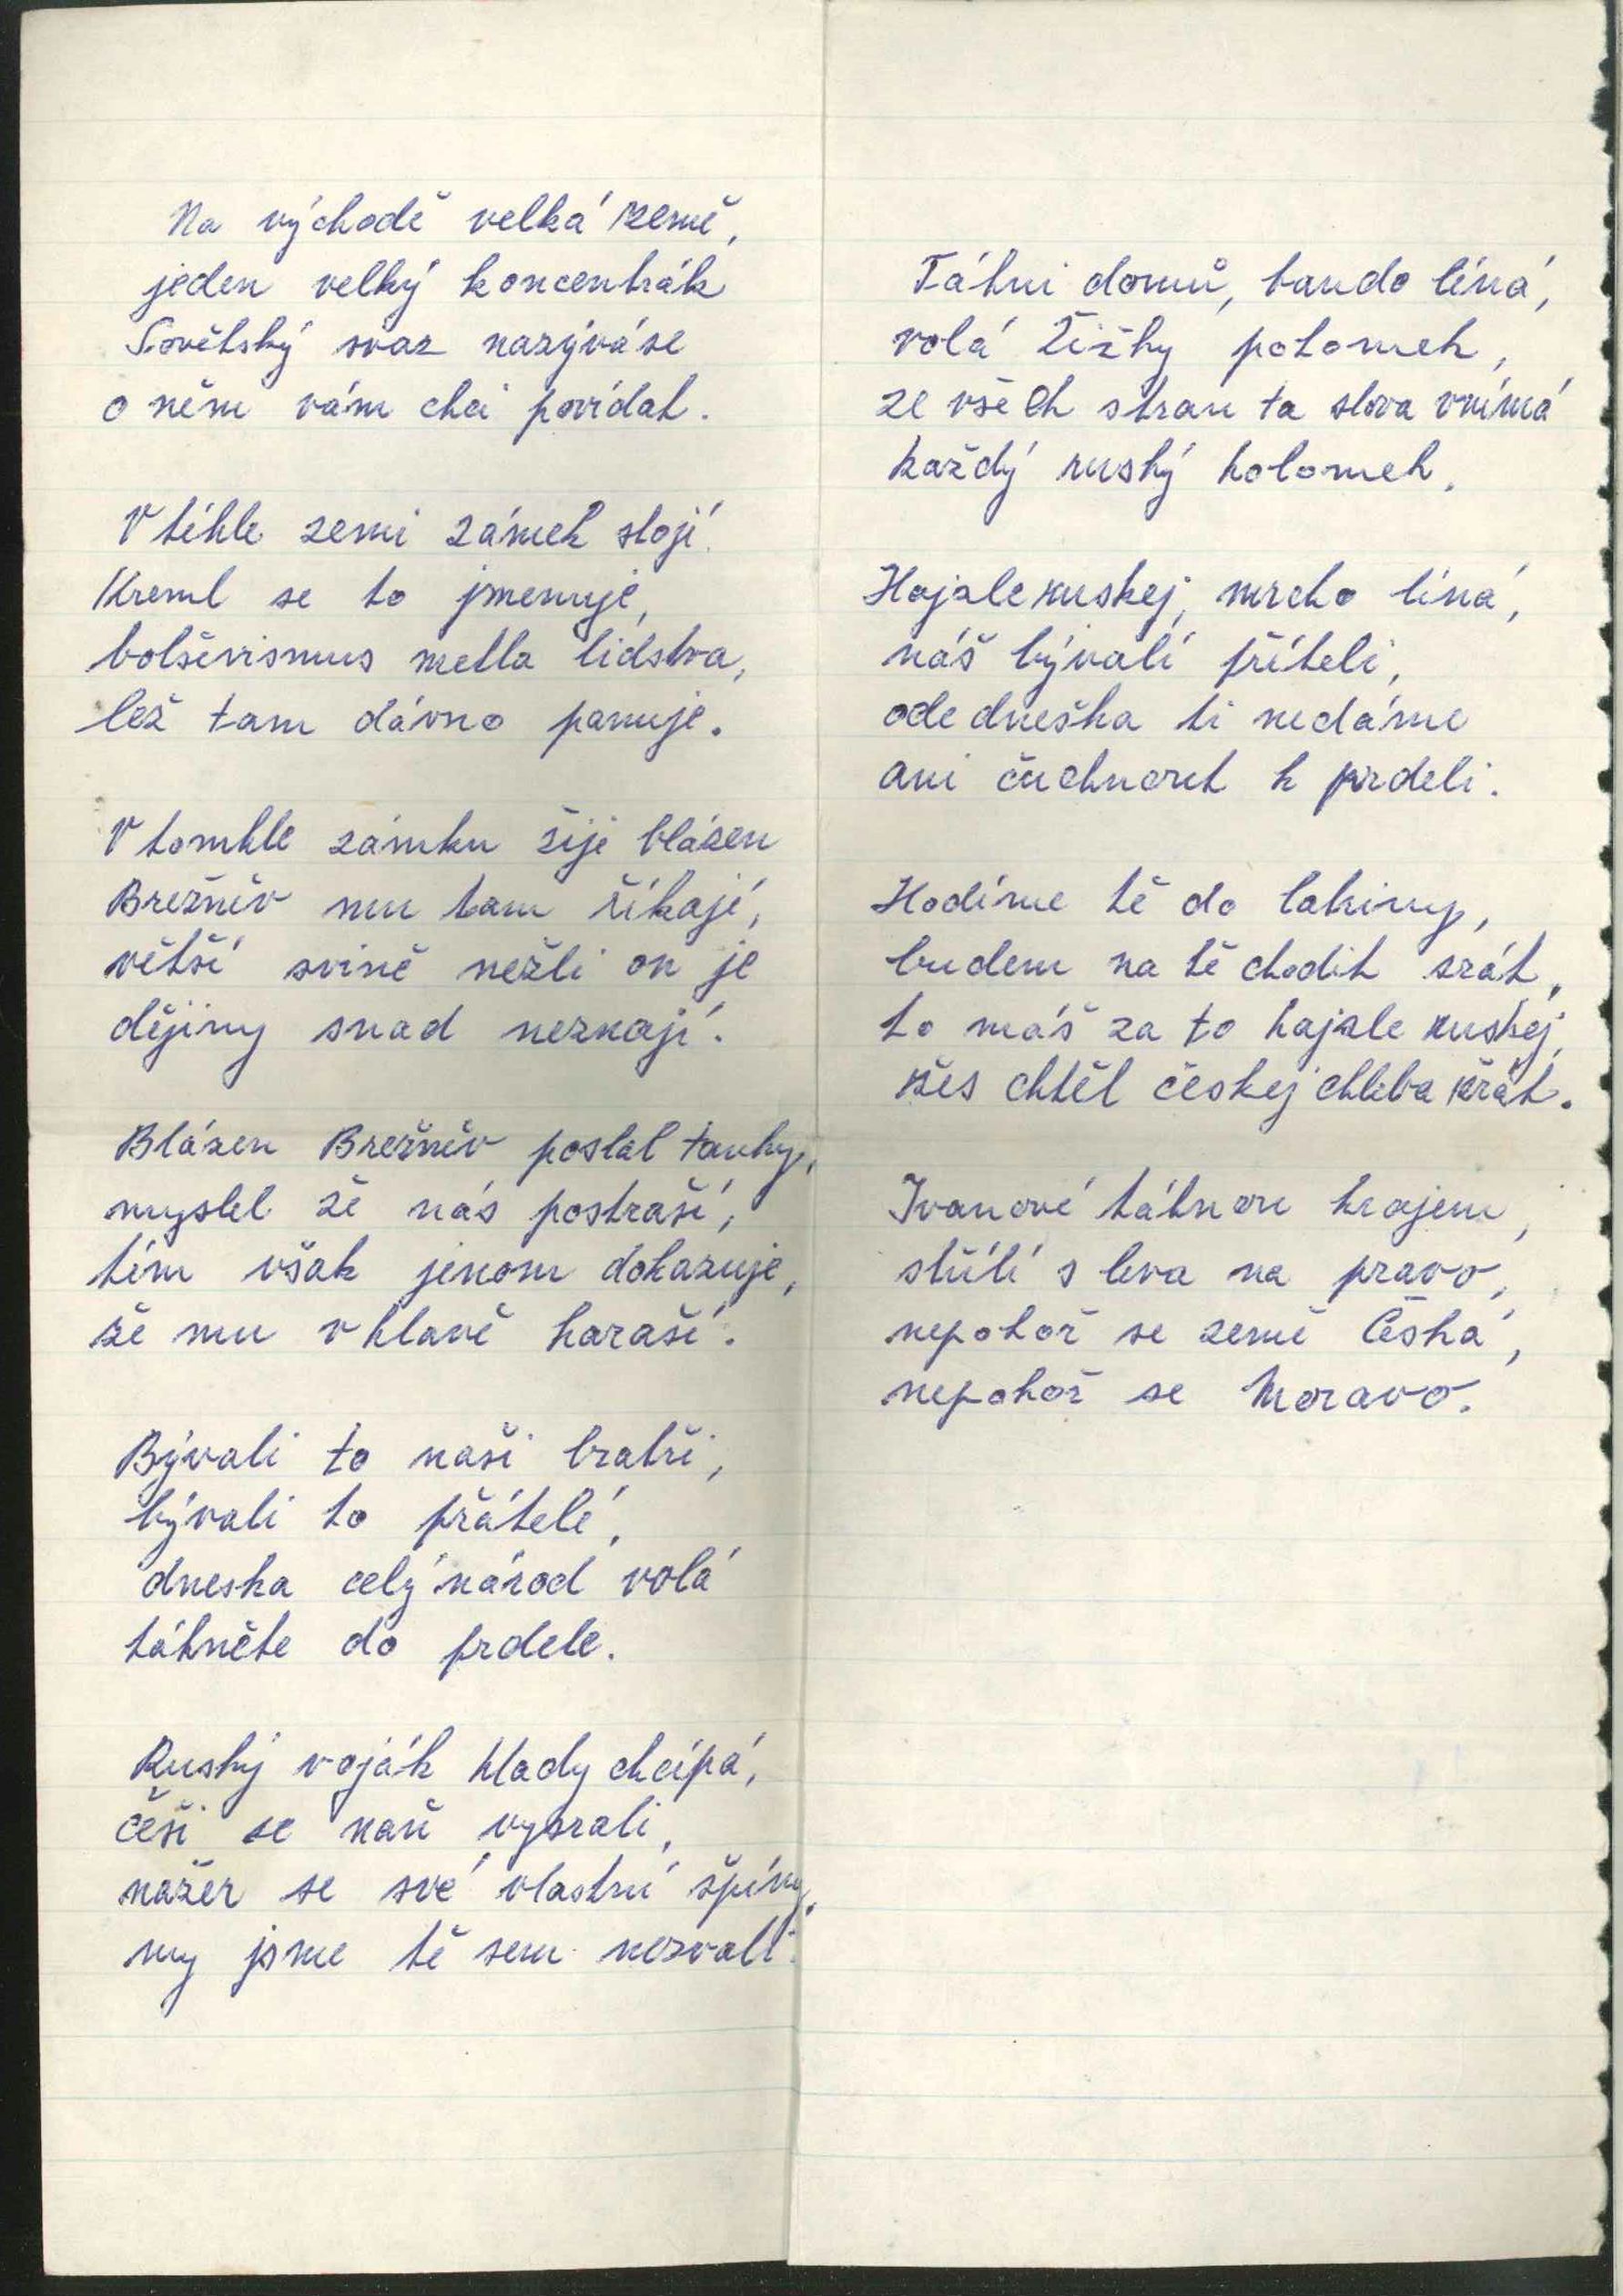 Na východě velká země,
jeden velký koncentrák
Sovětský svaz nazývá se
o něm vám chci povídat.
V téhle zemi zámek stojí
Kreml se to jmenuje,
bolševismus metla lidstva,
lež tam dávno panuje.
V tomhle zámku žije blázen
Brežněv mu tam říkají,
větší svině nežli on je
dějiny snad neznají.
Blázen Brežněv poslal tanky,
myslel že nás postraší,
tím však jenom dokazuje,
že mu v hlavě haraší.
Bývali to naši bratři,
bývali to přátelé,
dneska celý národ volá
táhněte do prdele.
Ruský voják hlady chcípá,
češi se naň vysrali,
nažer se své vlastní špíny,
my jsme tě sem nezvali.
Táhni domů, bando líná,
volá Žižky potomek,
ze všech stran ta slova vnímá
každý ruský holomek.
Hajzle ruskej, mrcho líná,
náš bývalí příteli,
ode dneška ti nedáme
ani čuchnout k prdeli.
Hodíme tě do latriny,
budem na tě chodit srát,
to máš za to hajzle ruskej,
žes chtěl českej chleba žrát.
Ivanové táhnou krajem,
střílí s leva na pravo,
nepokoř se země Česká,
nepokoř se Moravo.